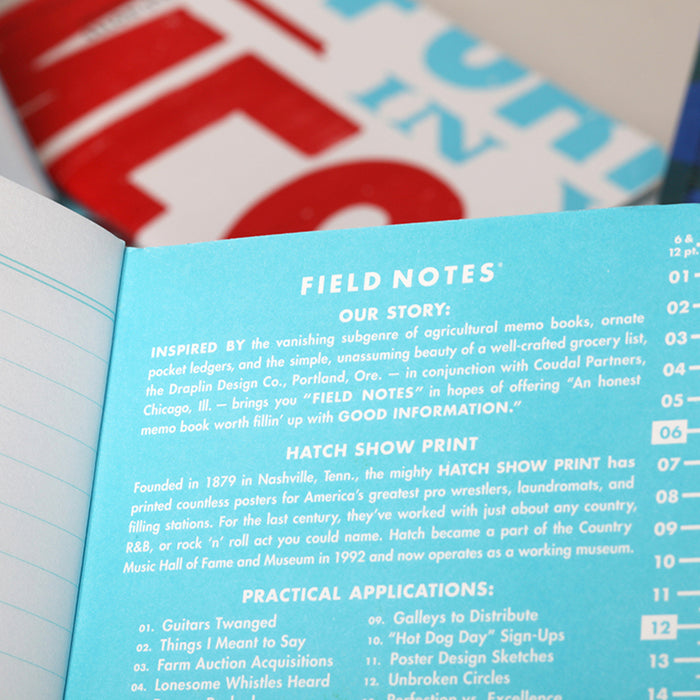 IN
FIELD NOTES
OUR STORY:
INSPIRED BY the vanishing subgenre of agricultural memo books, ornate
pocket ledgers, and the simple, unassuming beauty of a well-crafted grocery list,
the Draplin Design Co., Portland, Ore. — in conjunction with Coudal Partners,
Chicago, Ill. — brings you "FIELD NOTES" in hopes of offering "An honest
memo book worth fillin' up with GOOD INFORMATION."
HATCH SHOW PRINT
Founded in 1879 in Nashville, Tenn., the mighty HATCH SHOW PRINT has
printed countless posters for America's greatest pro wrestlers, laundromats, and
filling stations. For the last century, they've worked with just about any country,
R&B, or rock 'n' roll act you could name. Hatch became a part of the Country
Music Hall of Fame and Museum in 1992 and now operates as a working museum.
PRACTICAL APPLICATIONS:
01. Guitars Twanged
02. Things I Meant to Say
03. Farm Auction Acquisitions
04. Lonesome Whistles Heard
09. Galleys to Distribute
10. "Hot Dog Day" Sign-Ups
11. Poster Design Sketches
12. Unbroken Circles
Perfection vs. Excellence
6 &
12 pt.
01
02
03
04
05
06
07
08
09
10
11
12
13
14